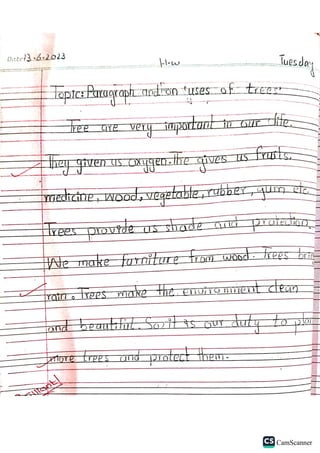 Date:13-6-2023
H.W
Tuesday
Topic: Paragraph and on 'uses of trees'
Tree are very important in our life.
They given us oxygen. The gives us fruits,
medicine, wood, vegetable, rubber, gum etc
Trees provide us shade and protection.
We make furniture from wood. Trees brin
rain. Trees make the environment clean
and beautiful. So it is our duty to plan
more trees and protect them.
CS CamScanner